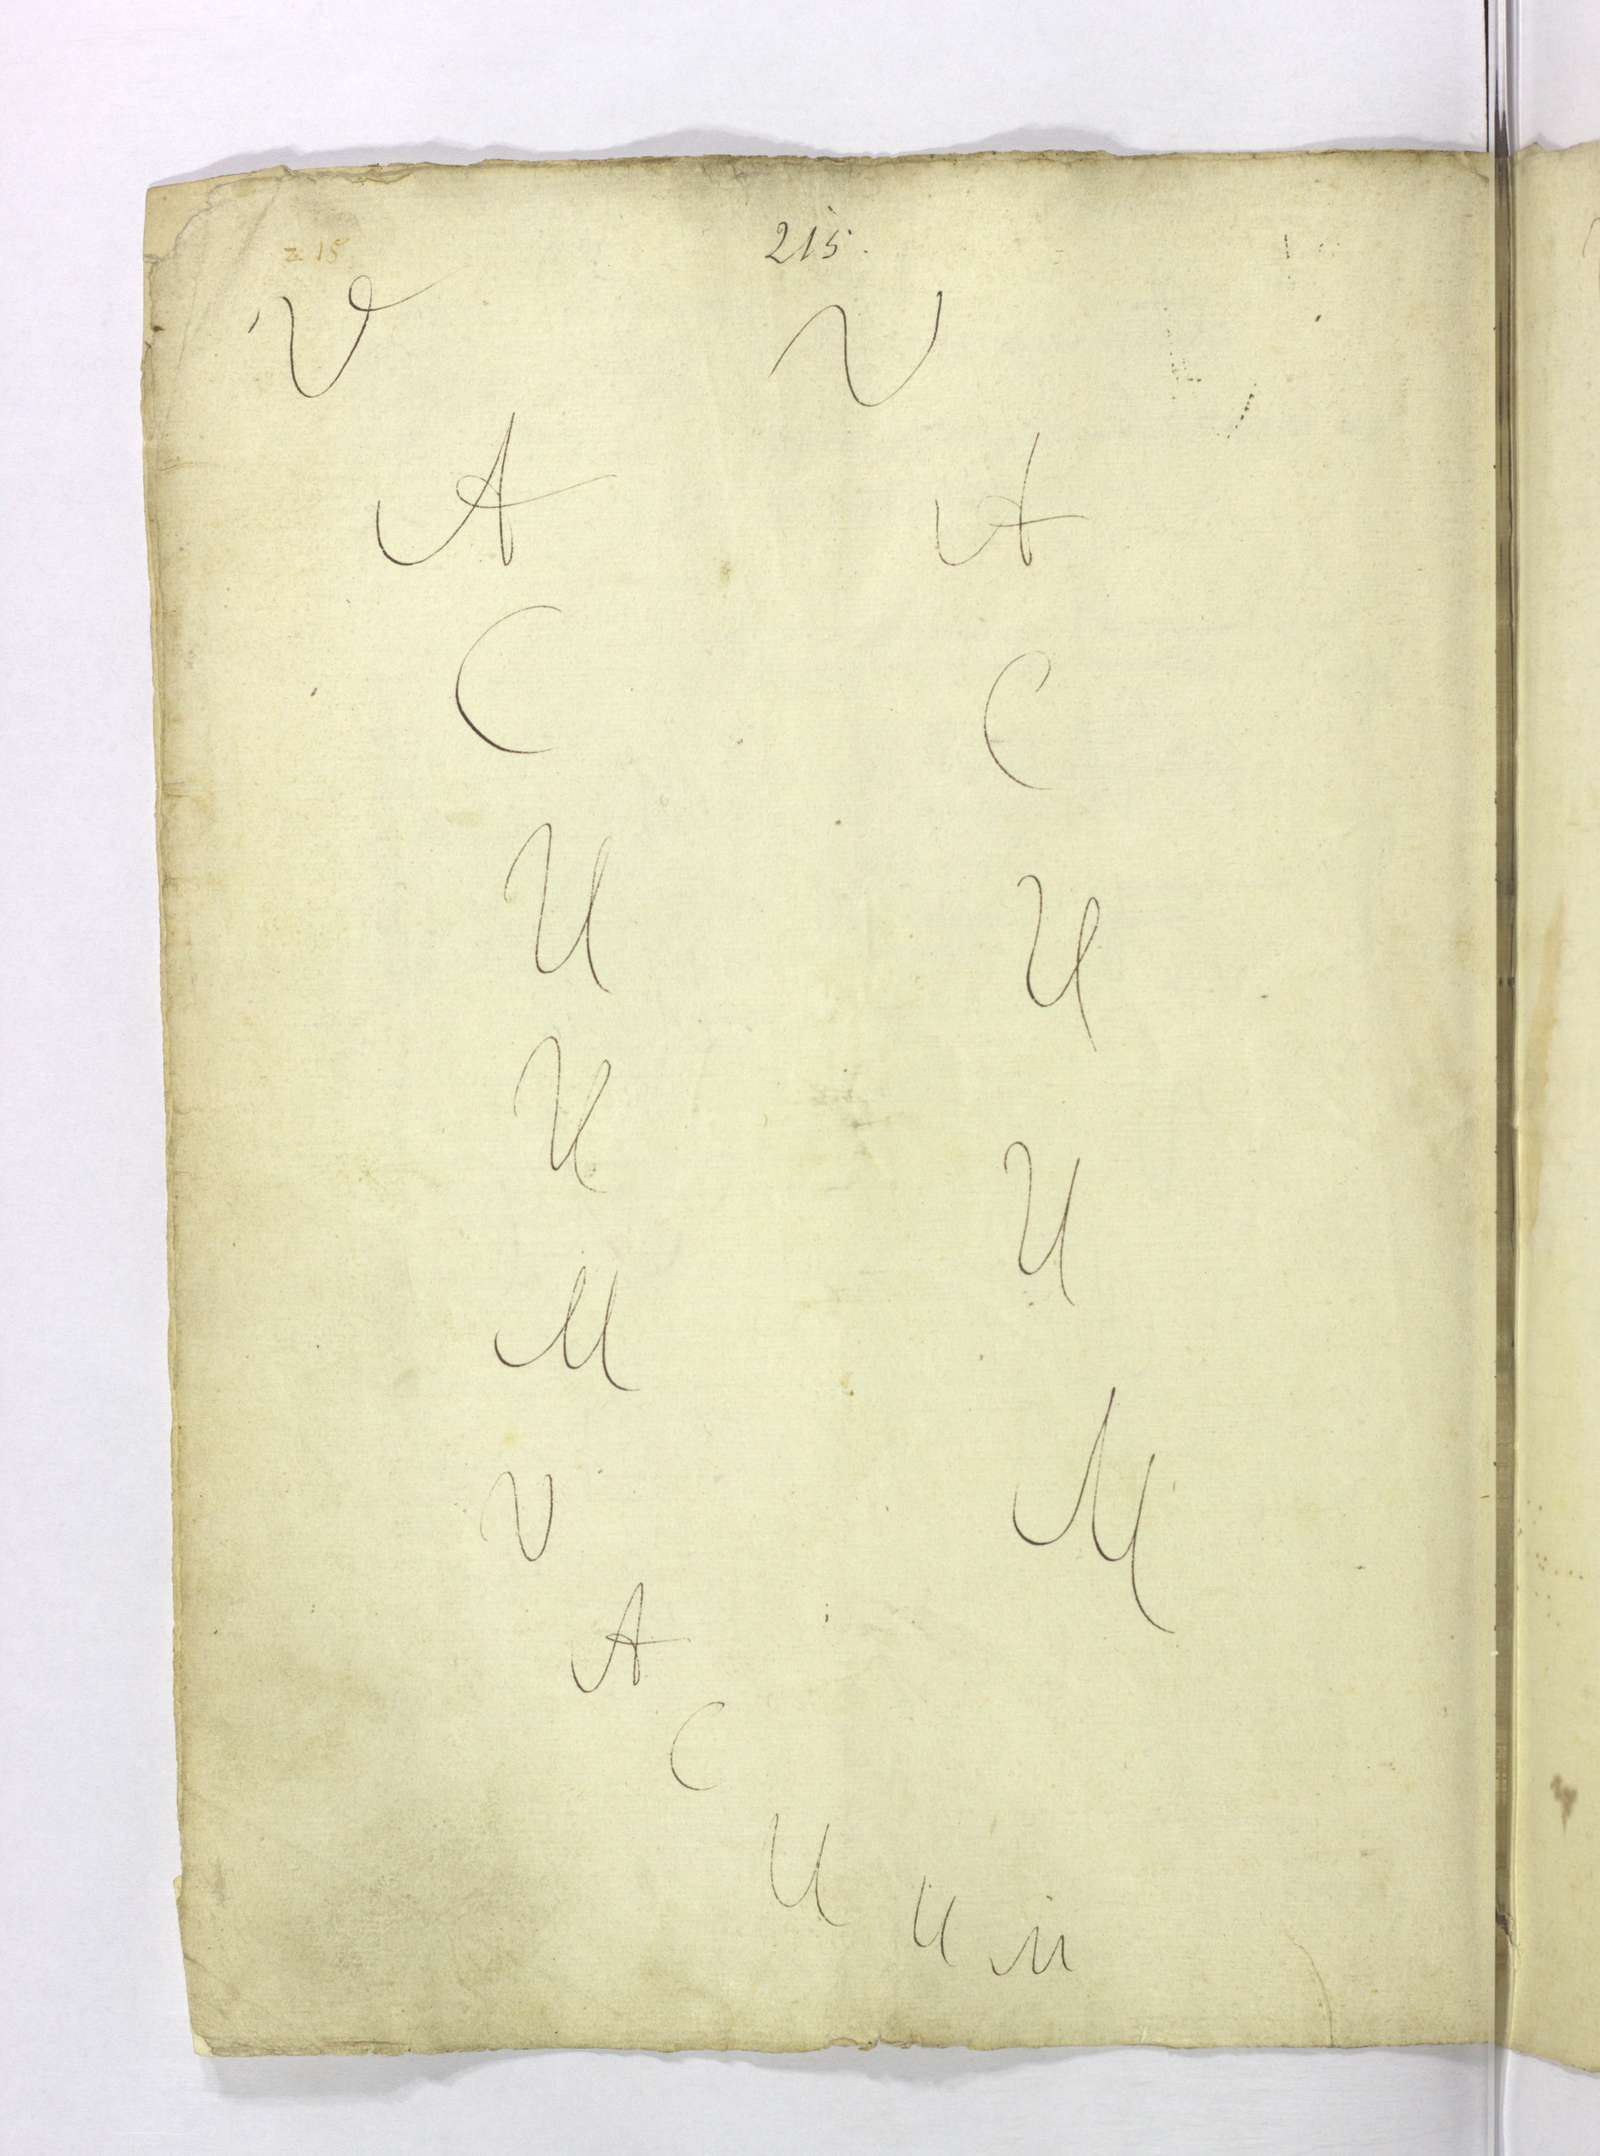 215 215.
V
A
C
U
U
M
V
A
C
U
U
M
V
A
C
U
U
M